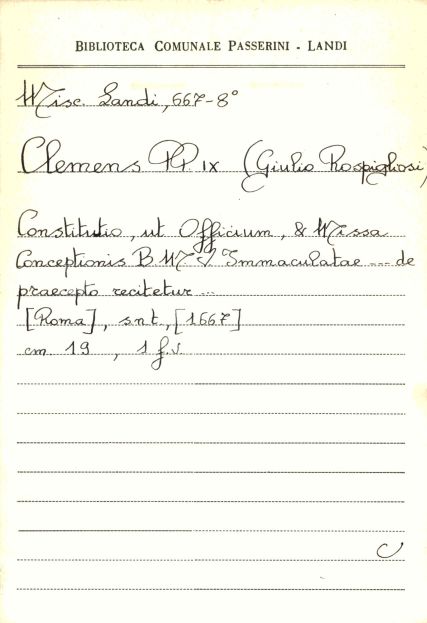 BIBLIOTECA COMUNALE PASSERINI - LANDI
Misc. Landi, 667-8°
Clemens PP. IX (Giulio Rospigliosi)
Constitutio, ut Officium, & Missa
Conceptionis B M V Immaculatae --- de
praecepto recitetur ...
[Roma], s.n.t., [1667]
cm 19 , 1 f.v.
C